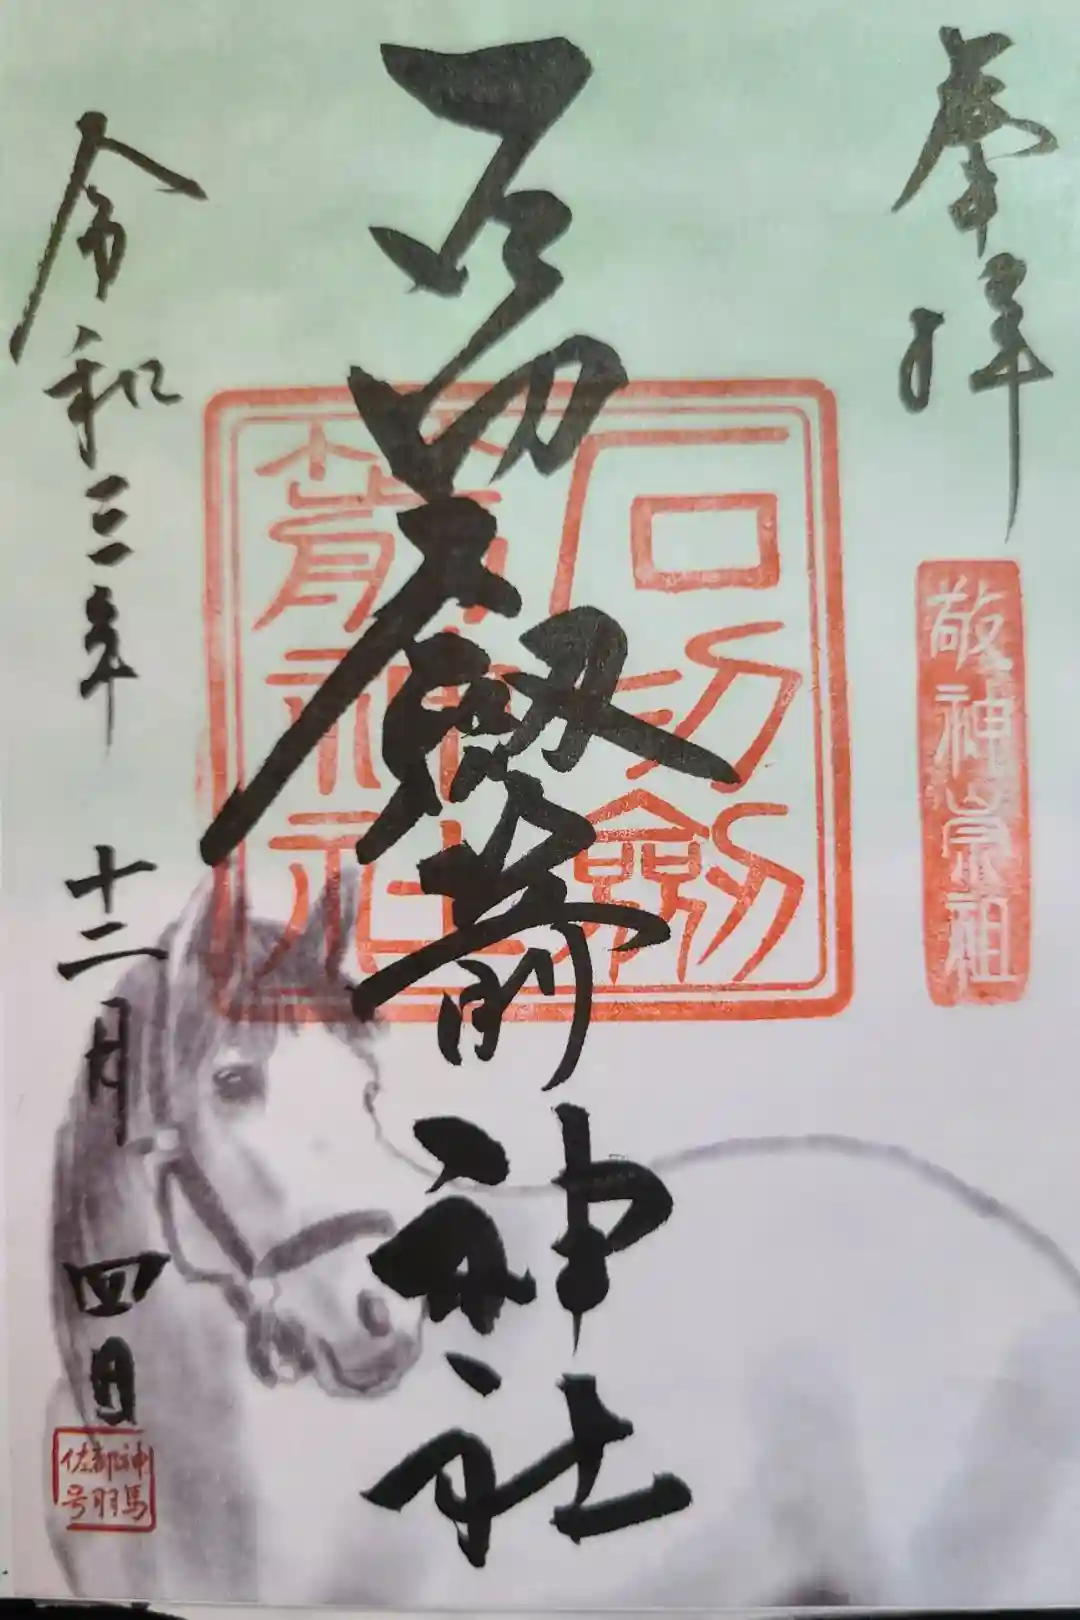 奉拝
敬神崇祖
石切劔箭神社
石切劔
箭神社
令和三年 十二月 四日
神馬
都羽
佐号